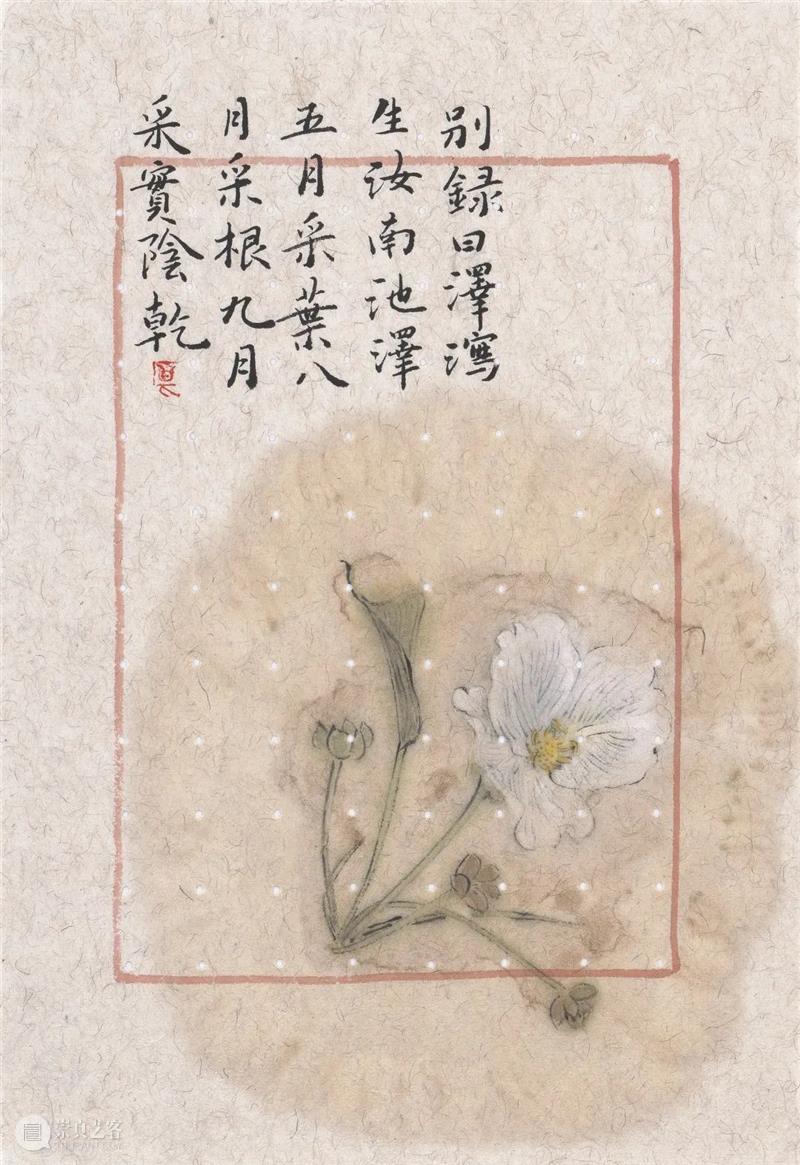 別録曰澤瀉
生汝南池澤
五月采葉八
月采根九月
采實陰乾
崇真艺客